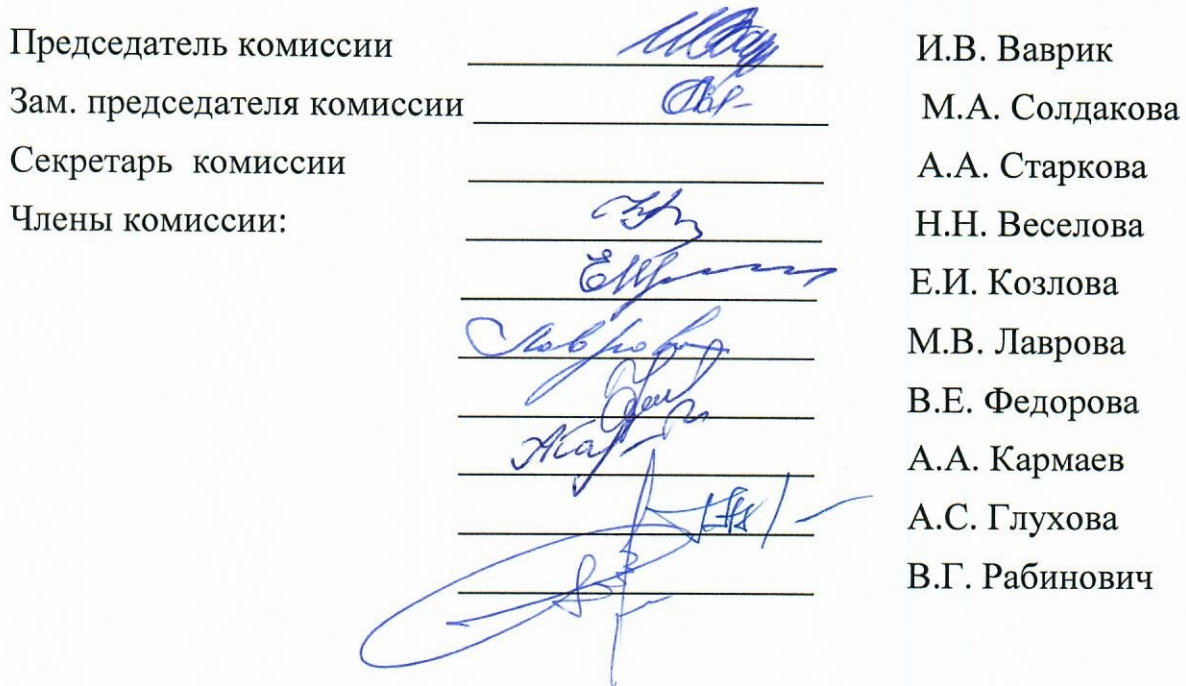 Председатель комиссии И.В. Ваврик
Зам. председателя комиссии М.А. Солдакова
Секретарь комиссии А.А. Старкова
Члены комиссии: Н.Н. Веселова
Е.И. Козлова
Лаврова М.В. Лаврова
В.Е. Федорова
А.А. Кармаев
А.С. Глухова
В.Г. Рабинович